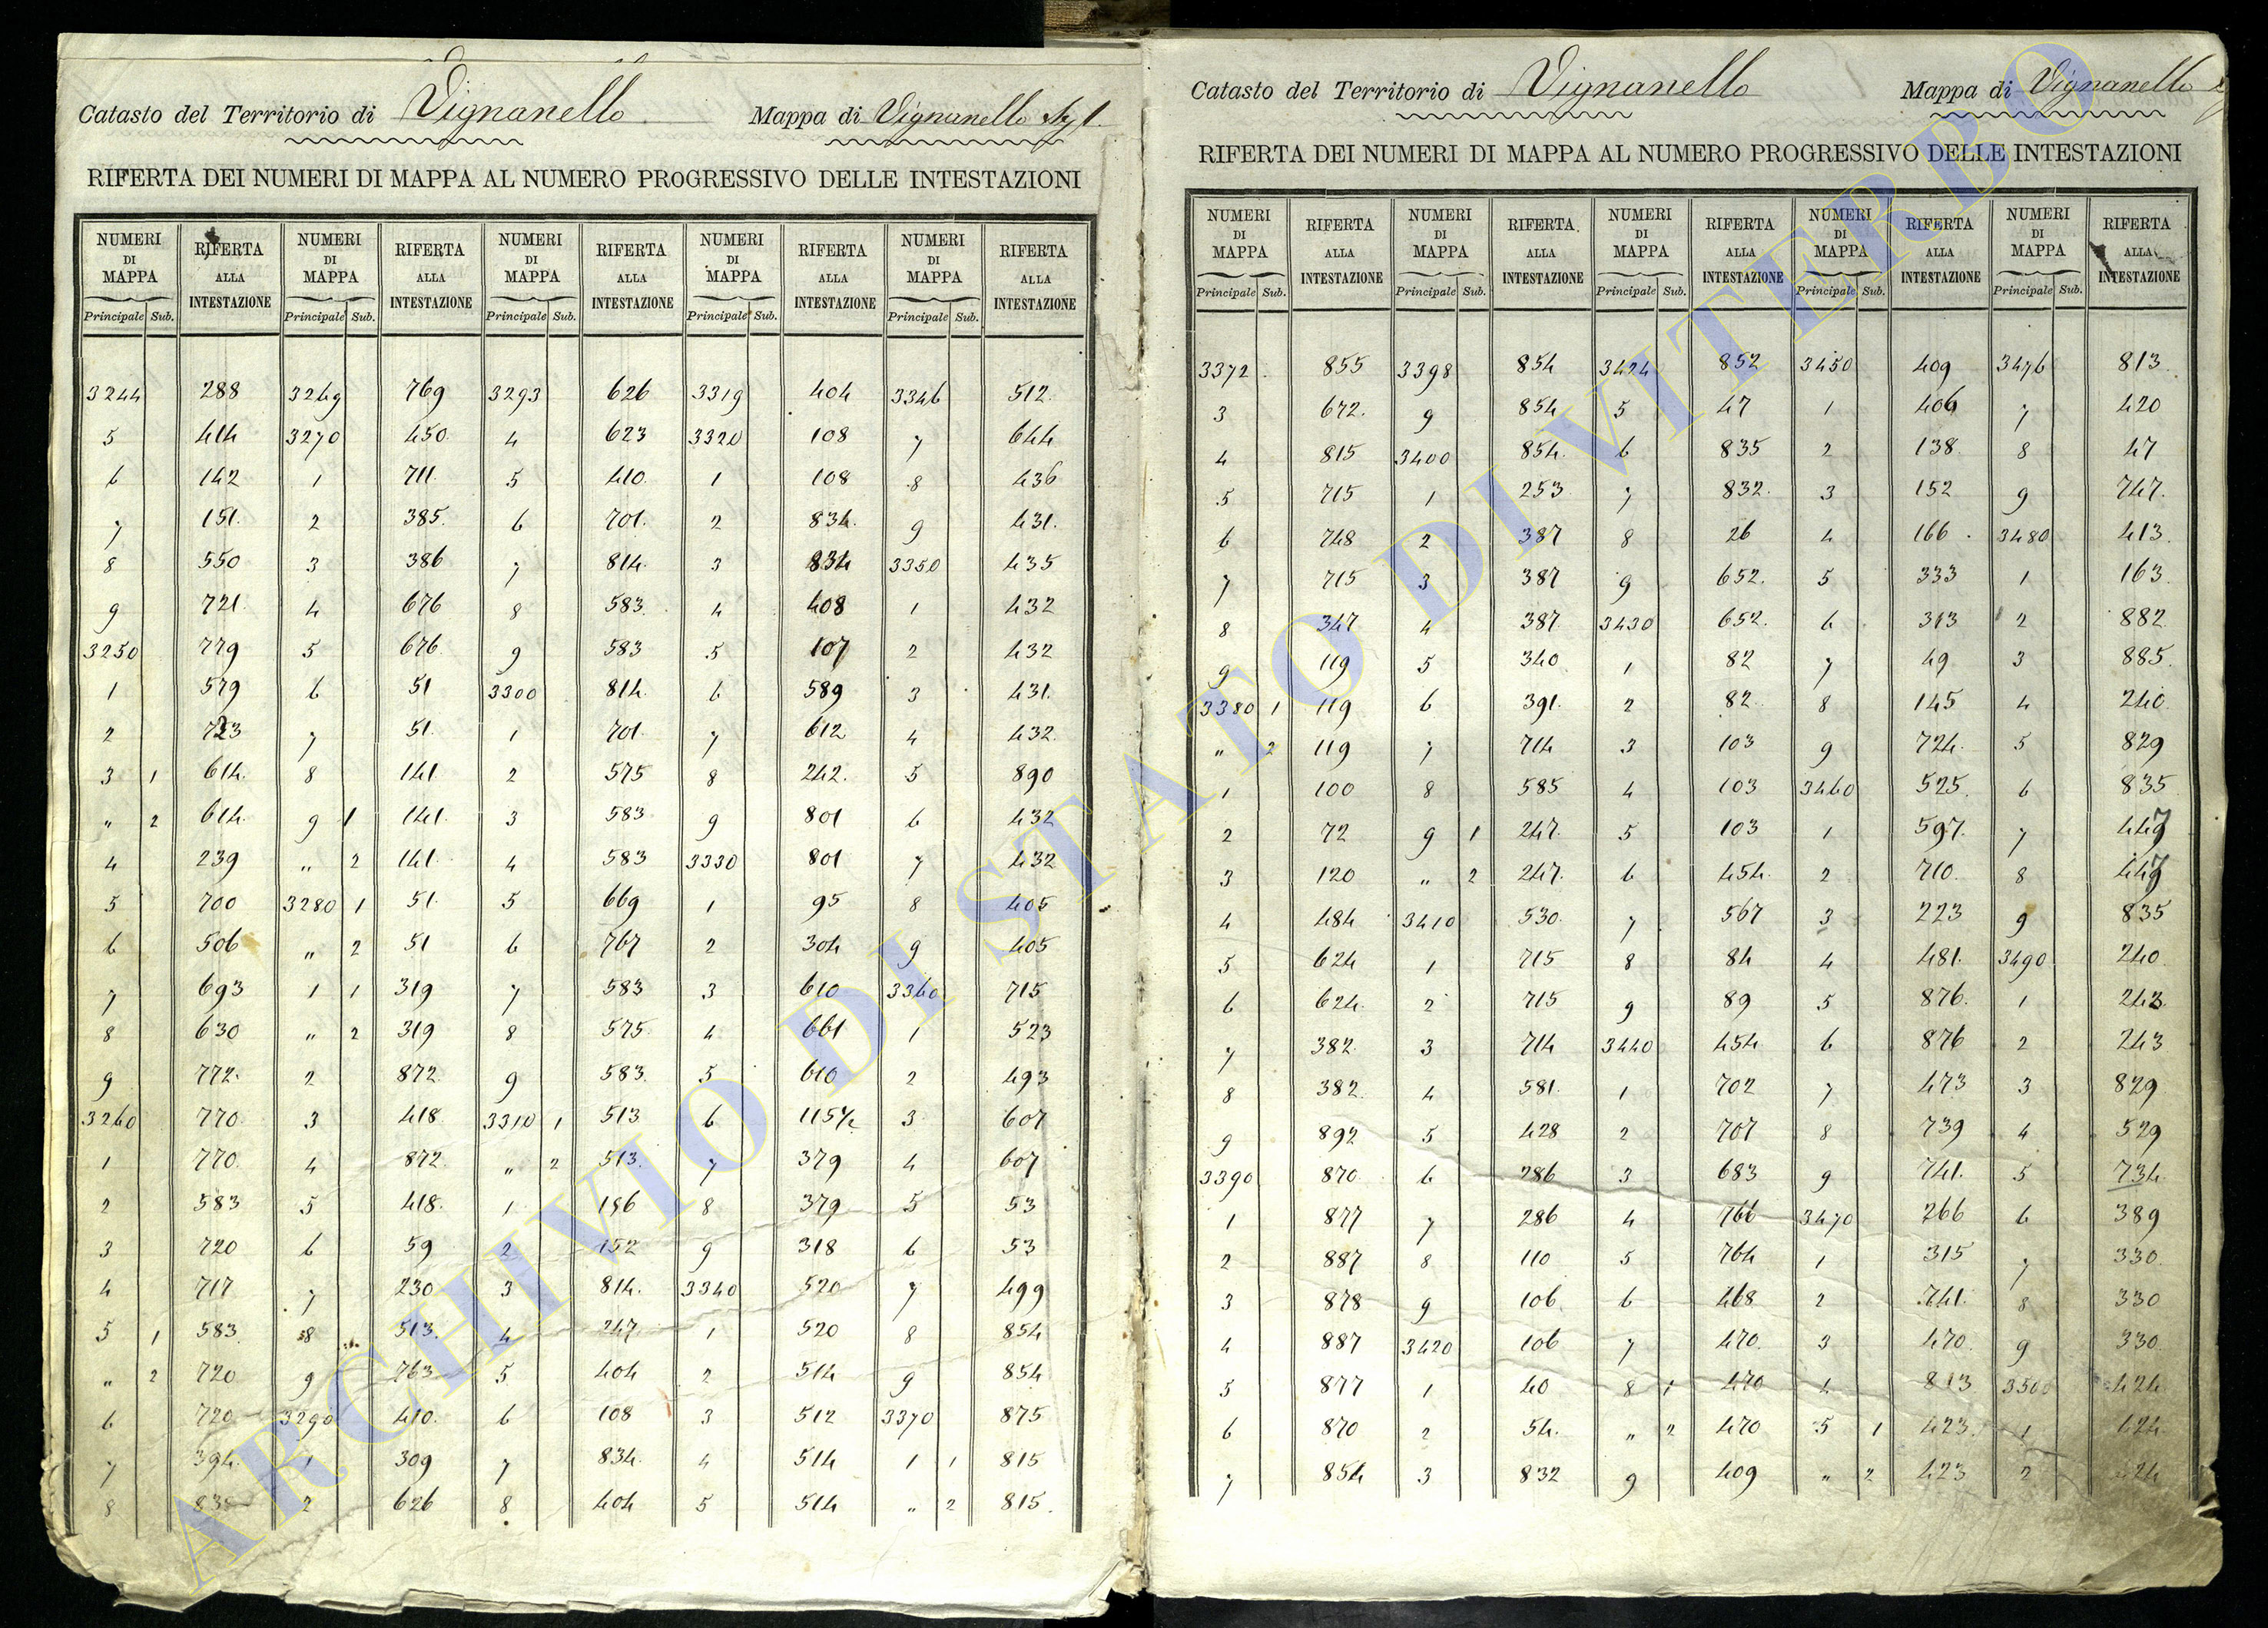 Catasto del Territorio di Vignanello Mappa di Vignanello
RIFERTA DEI NUMERI DI MAPPA AL NUMERO PROGRESSIVO DELLE INTESTAZIONI
NUMERI DI MAPPA RIFERTA ALLA INTESTAZIONE NUMERI DI MAPPA RIFERTA ALLA INTESTAZIONE NUMERI DI MAPPA RIFERTA ALLA INTESTAZIONE NUMERI DI MAPPA RIFERTA ALLA INTESTAZIONE NUMERI DI MAPPA RIFERTA ALLA INTESTAZIONE
Principale Sub. Principale Sub. Principale Sub. Principale Sub. Principale Sub.
3244 288 3269 769 3293 626 3319 404 3346 512
5 414 3270 450 4 623 3320 108 7 644
6 142 1 711 5 410 1 108 8 436
7 151 2 385 6 701 2 834 9 431
8 550 3 386 7 814 3 834 3350 435
9 721 4 676 8 583 4 408 1 432
3250 779 5 676 9 583 5 107 2 432
1 579 6 51 3300 814 6 589 3 431
2 723 7 51 1 701 7 612 4 432
3 1 614 8 141 2 575 8 242 5 890
" 2 614 9 1 141 3 583 9 801 6 432
4 239 " 2 141 4 583 3330 801 7 432
5 700 3280 1 51 5 669 1 95 8 405
6 506 " 2 51 6 767 2 304 9 405
7 693 1 1 319 7 583 3 610 3360 715
8 630 " 2 319 8 575 4 661 1 523
9 772 2 872 9 583 5 610 2 493
3260 770 3 418 3310 1 513 6 115½ 3 607
1 770 4 872 " 2 513 7 379 4 607
2 583 5 418 1 8 379 5 53
3 720 6 59 2 152 9 318 6 53
4 717 7 230 3 814 3340 520 7 499
5 1 583 8 513 4 247 1 520 8 854
" 2 720 9 763 5 404 2 514 9 854
6 720 3290 410 6 108 3 512 3370 875
7 394 1 309 7 834 4 514 1 1 815
8 2 626 8 404 5 514 " 2 815
Catasto del Territorio di Vignanello Mappa di Vignanello
RIFERTA DEI NUMERI DI MAPPA AL NUMERO PROGRESSIVO DELLE INTESTAZIONI
NUMERI DI MAPPA RIFERTA ALLA INTESTAZIONE NUMERI DI MAPPA RIFERTA ALLA INTESTAZIONE NUMERI DI MAPPA RIFERTA ALLA INTESTAZIONE NUMERI DI MAPPA RIFERTA ALLA INTESTAZIONE NUMERI DI MAPPA RIFERTA ALLA INTESTAZIONE
Principale Sub. Principale Sub. Principale Sub. Principale Sub. Principale Sub.
3372 855 3398 854 3424 852 3450 409 3476 813
3 672 9 854 5 47 1 406 7 420
4 815 3400 854 6 835 2 138 8 47
5 715 1 253 7 832 3 152 9 747
6 748 2 387 8 26 4 166 3480 413
7 715 3 387 9 652 5 333 1 163
8 347 4 387 3430 652 6 313 2 882
9 119 5 340 1 82 7 49 3 885
3380 1 119 6 391 2 82 8 145 4 240
" 2 119 7 714 3 103 9 724 5 829
1 100 8 585 4 103 3460 525 6 835
2 72 9 1 247 5 103 1 597 7
3 120 " 2 247 6 454 2 710 8
4 484 3410 530 7 567 3 223 9 835
5 624 1 715 8 84 4 481 3490 240
6 624 2 715 9 89 5 876 1 243
7 382 3 714 3440 454 6 876 2 243
8 382 4 581 1 702 7 473 3 829
9 892 5 428 2 707 8 739 4 529
3390 870 6 286 3 683 9 741 5 734
1 877 7 286 4 766 3470 266 6 389
2 887 8 110 5 764 1 315 7 330
3 878 9 106 6 468 2 741 8 330
4 887 3420 106 7 470 3 470 9 330
5 877 1 40 8 1 470 4 813 3500 424
6 870 2 54 " 2 470 5 1 423 1 424
7 854 3 832 9 409 " 2 423 2 424
ARCHIVIO DI STATO DI VITERBO